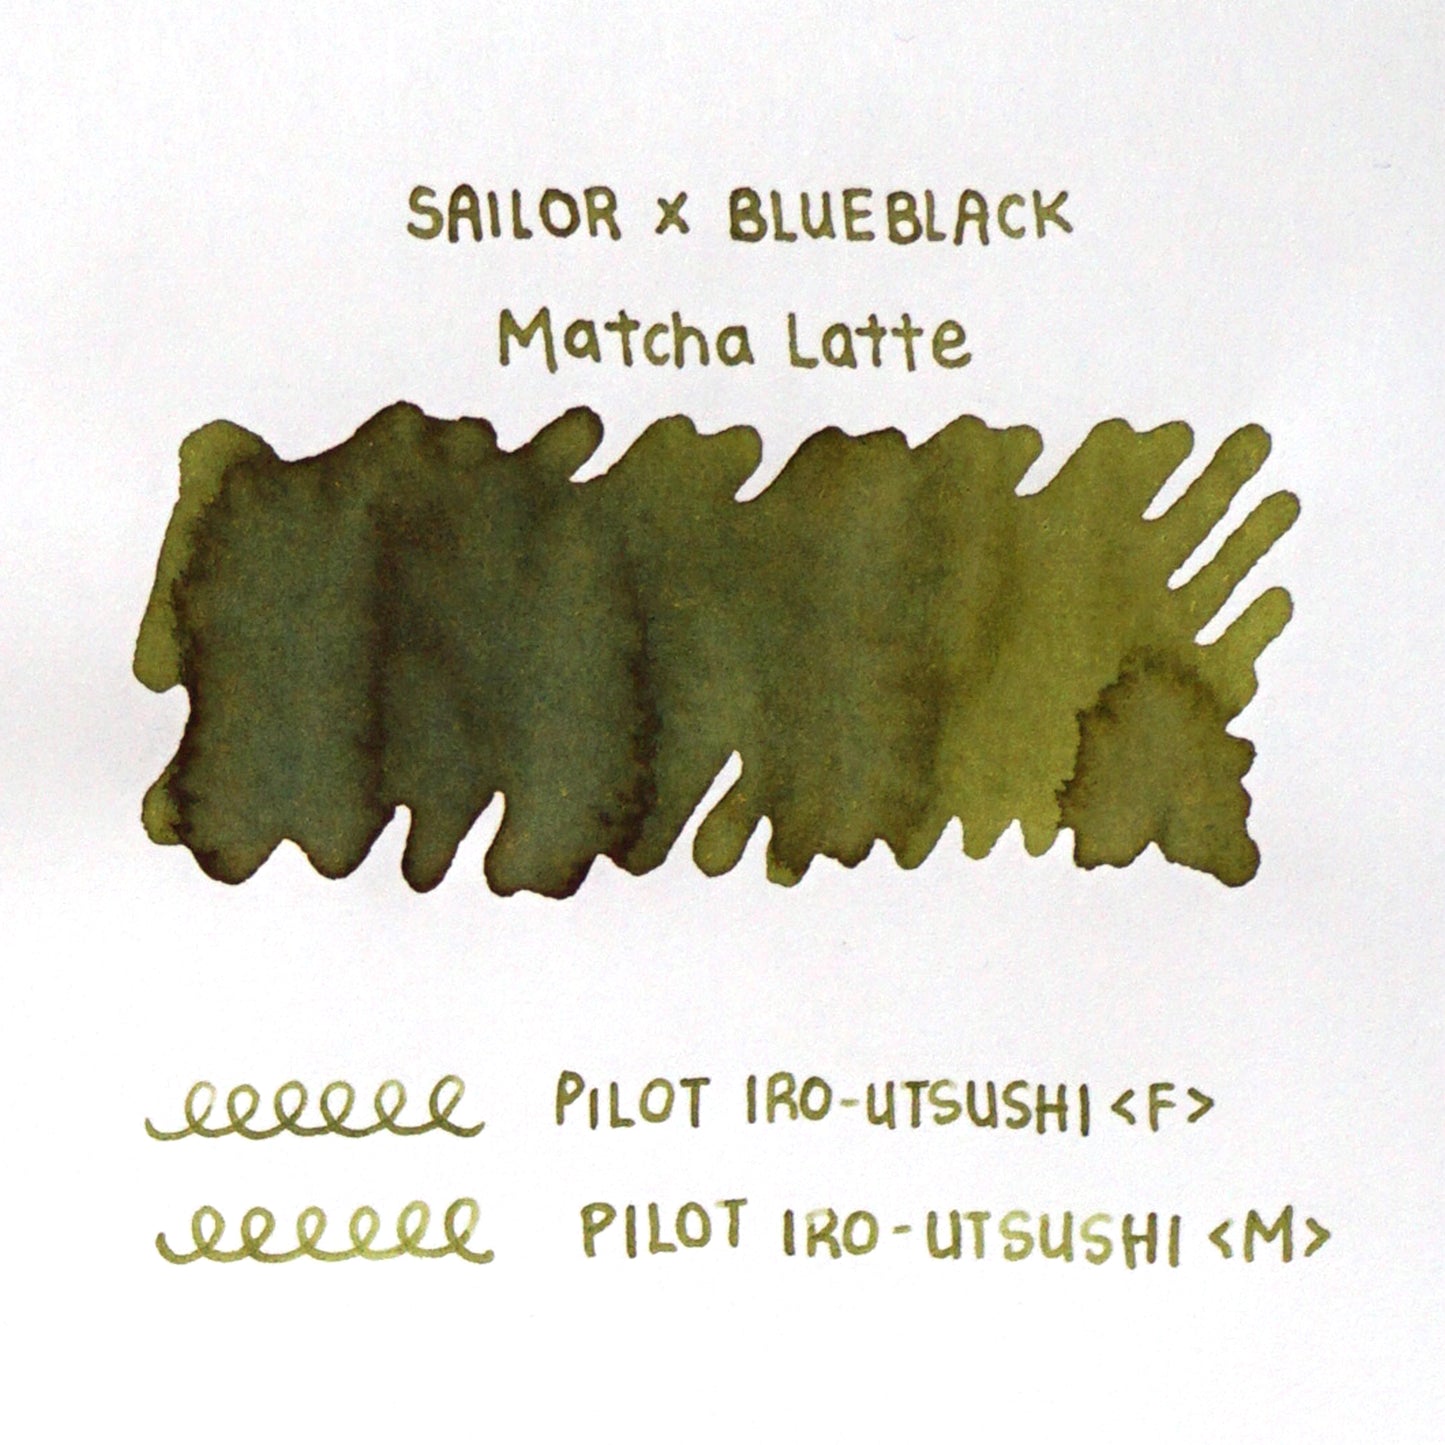 SAILOR x BLUEBLACK
Matcha Latte
PILOT IRO-UTSUSHI <F>
PILOT IRO-UTSUSHI <M>